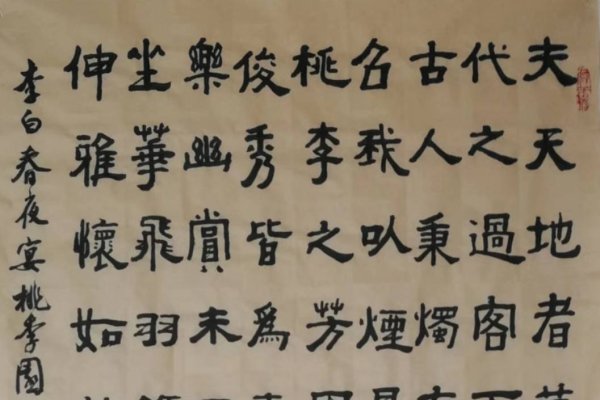 夫天地者
代之過客
古人秉燭
召我以煙
桃李之芳
俊秀皆為
樂幽賞未
坐華飛羽
伸雅懷如
李白春夜宴桃李園